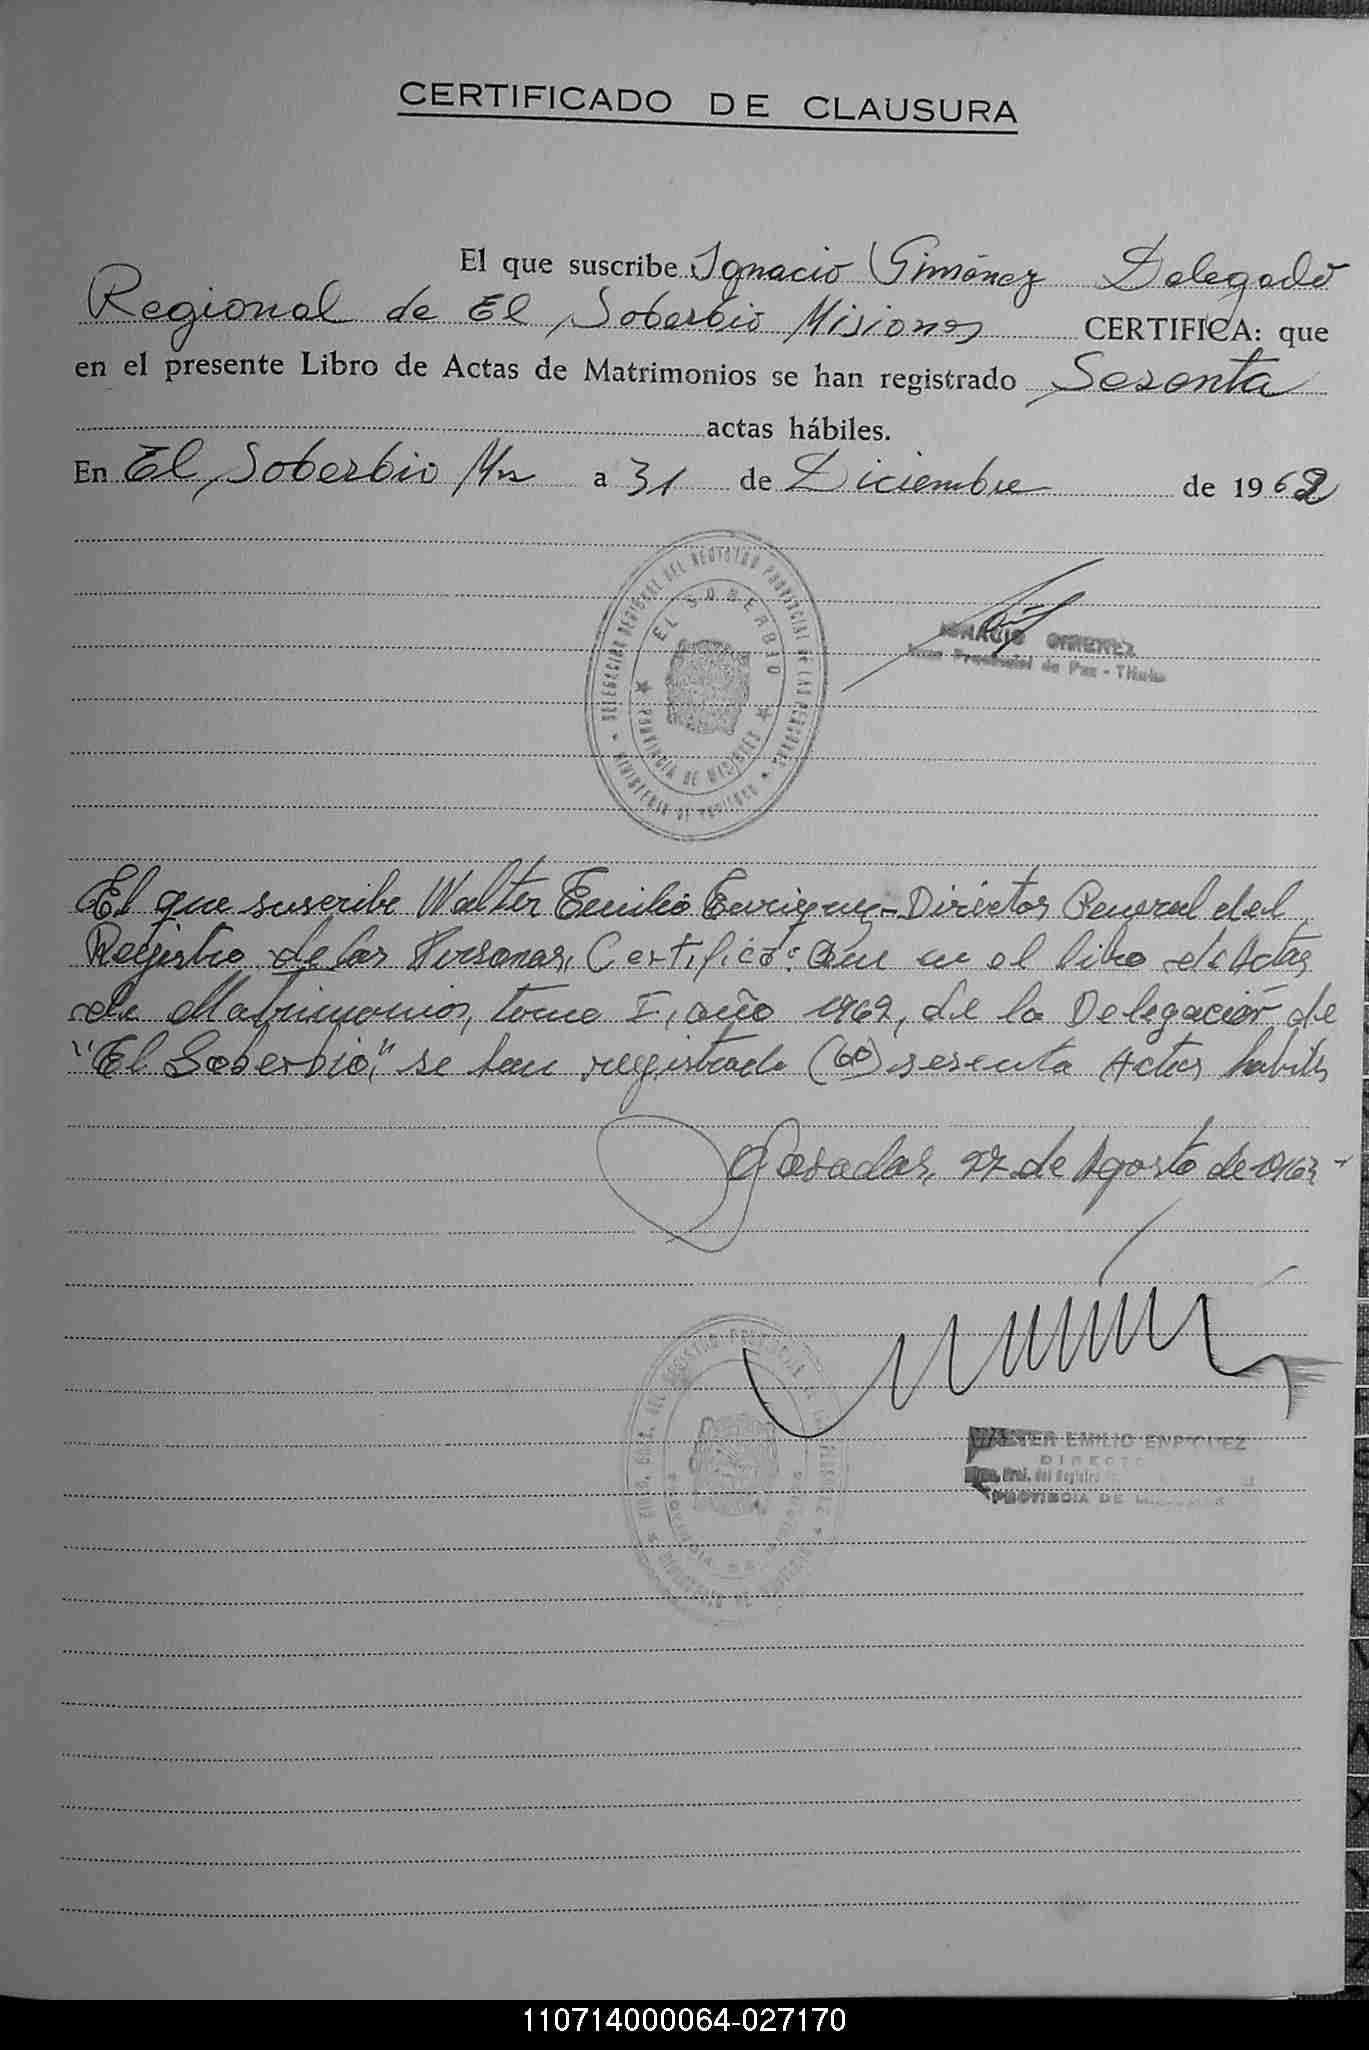 CERTIFICADO DE CLAUSURA
El que suscribe Ignacio Giménez Delegado
Regional de El Soberbio Misiones CERTIFICA: que
en el presente Libro de Actas de Matrimonios se han registrado Sesenta
actas hábiles.
En El Soberbio Mns a 31 de Diciembre de 1962
DELEGACION REGIONAL DEL REGISTRO PROVINCIAL DE LAS PERSONAS
EL SOBERBIO
PROVINCIA DE MISIONES
MINISTERIO DE GOBIERNO
IGNACIO GIMENEZ
Juez Provincial de Paz - Titular
El que suscribe Walter Emilio Enriquez - Director General del
Registro de las Personas, Certifica: Que en el libro de Actas
de Matrimonios, tomo I, año 1962, de la Delegación de
"El Soberbio", se han registrado (60) sesenta Actas hábiles
Posadas, 27 de Agosto de 1963 -
WALTER EMILIO ENRIQUEZ
DIRECTOR
Gral. del Registro
PROVINCIA DE MISIONES
110714000064-027170